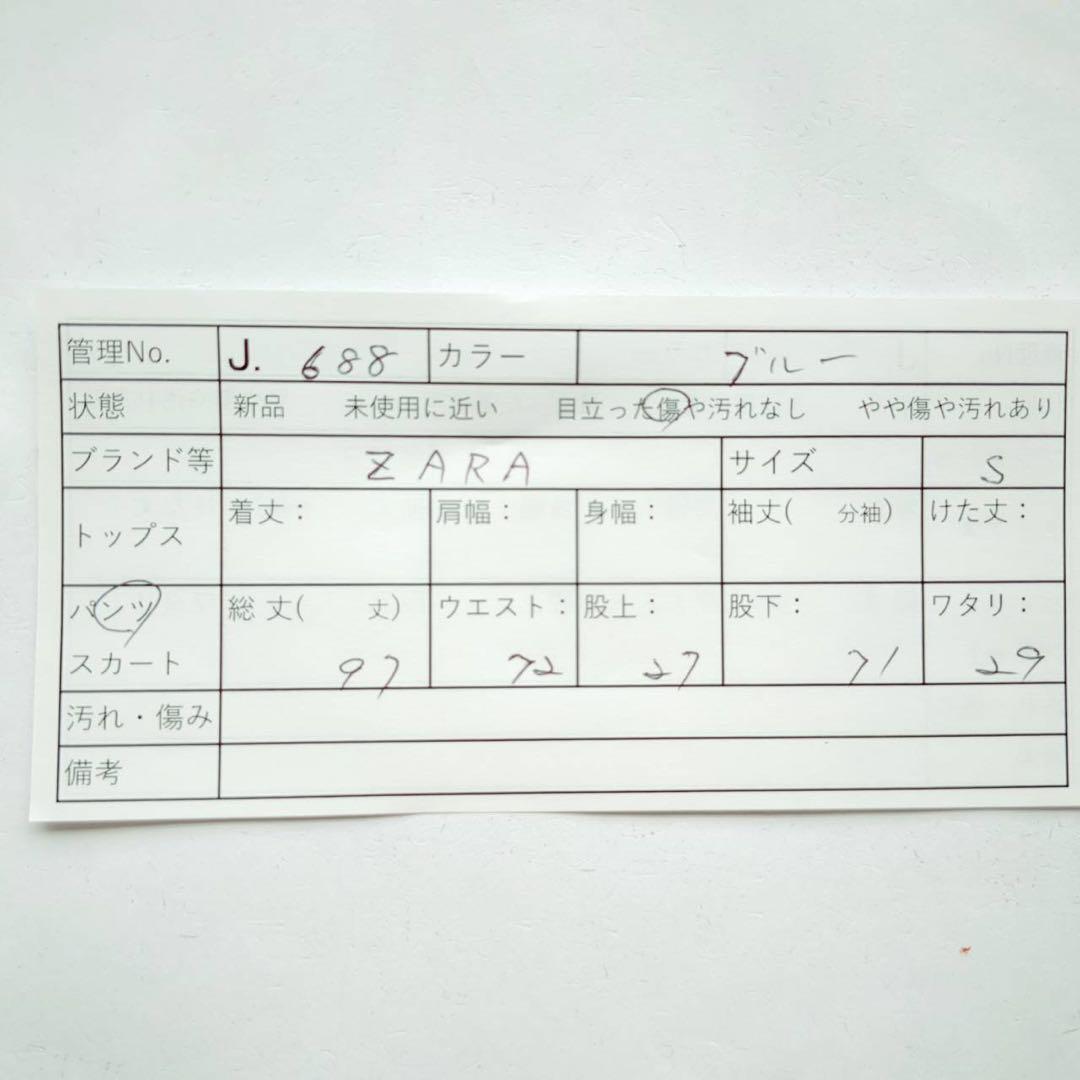 管理No. J. 688 カラー ブルー
状態 新品 未使用に近い 目立った傷や汚れなし やや傷や汚れあり
ブランド等 ZARA サイズ S
トップス 着丈： 肩幅： 身幅： 袖丈( 分袖) けた丈：
パンツ 総丈( 丈) ウエスト： 股上： 股下： ワタリ：
スカート 97 72 27 71 29
汚れ・傷み
備考